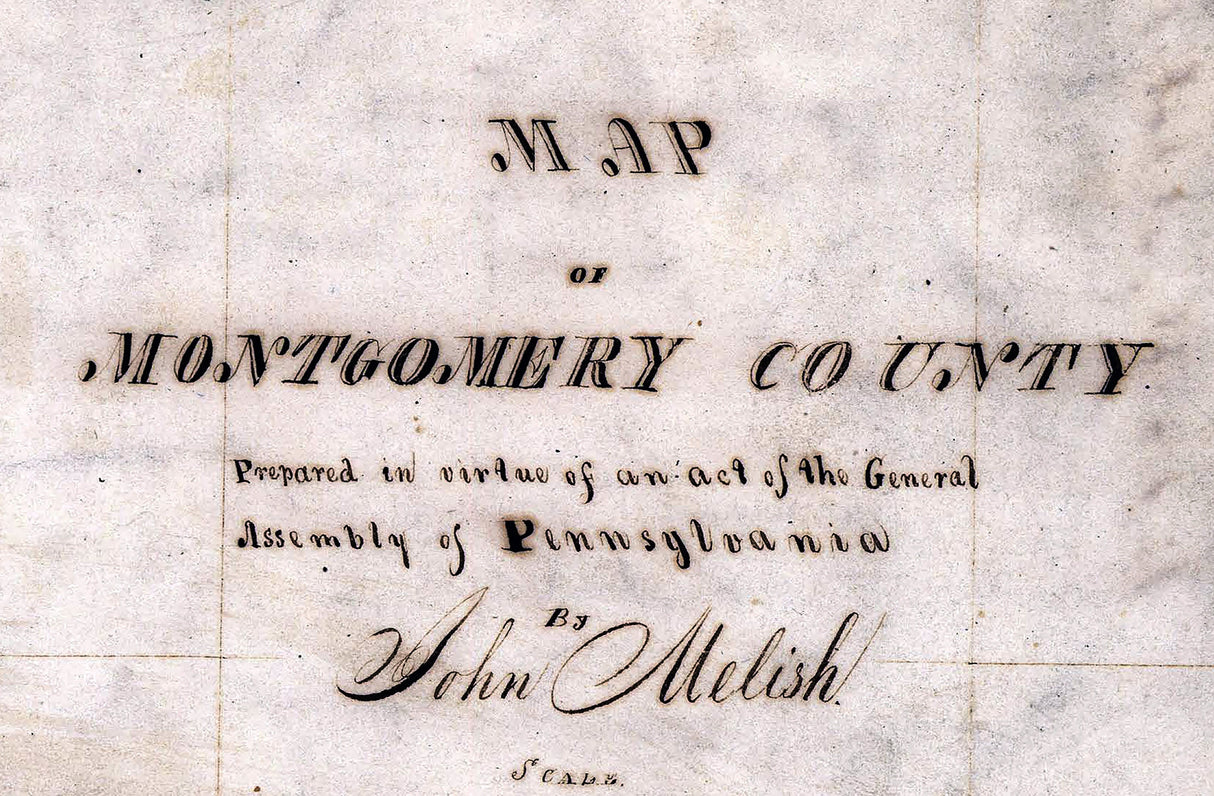 MAP
OF
MONTGOMERY COUNTY
Prepared in virtue of an act of the General
Assembly of Pennsylvania
By
John Melish.
SCALE.